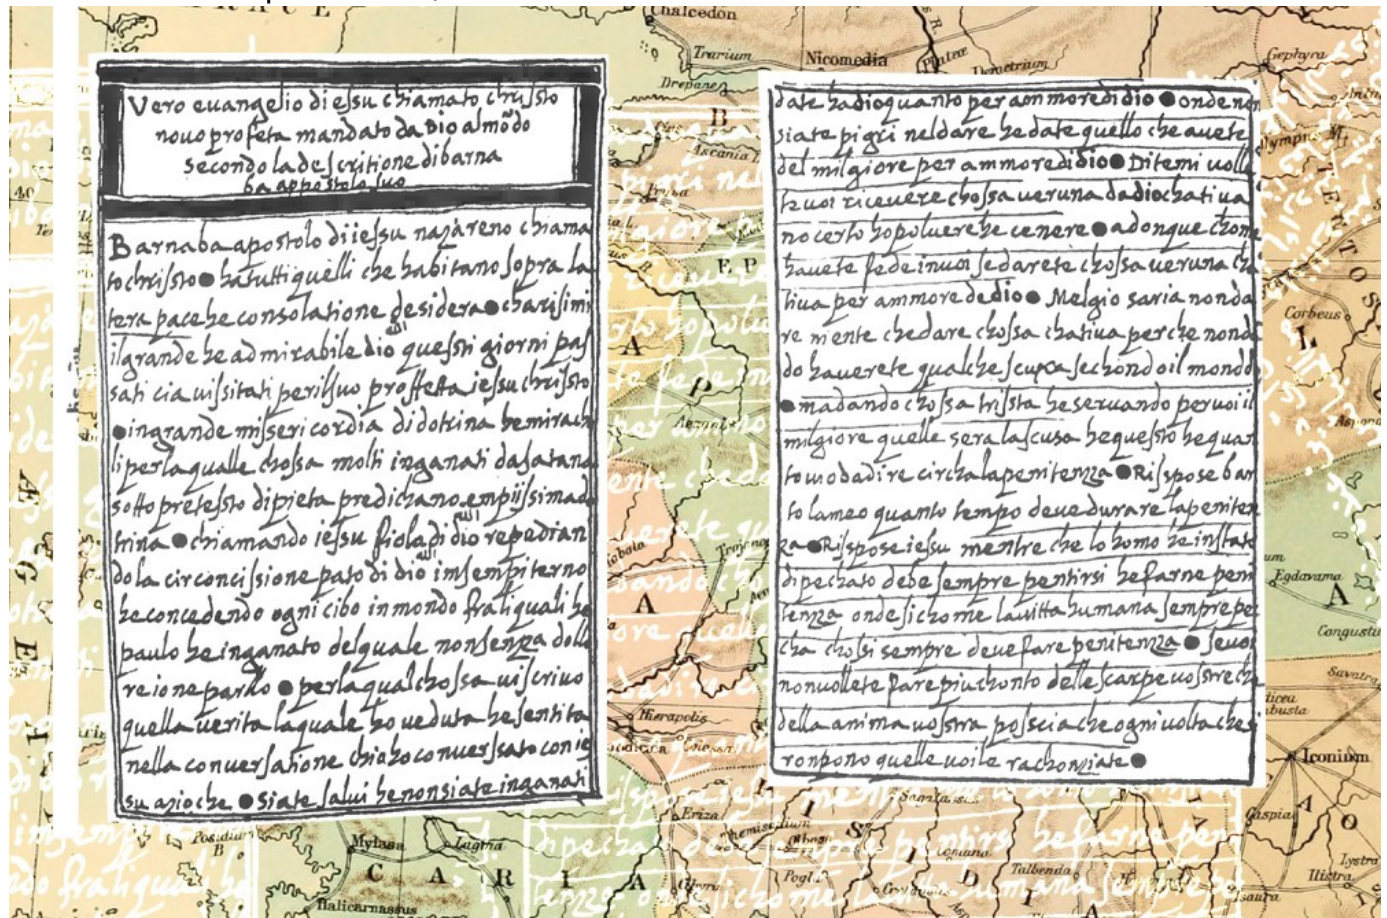 Vero euangelio di essu chiamato chrissto
nouo profeta mandato da Dio al mõdo
secondo la descritione di barna
ba appostolo suo
Barnaba apostolo di iessu nazareno chiama
to chrissto ha tutti quelli che habitano sopra la
tera pace he consolatione desidera charisimi
il grande he admirabile dio questi giorni pas
sati cia uissitati per il suo proffetta iessu chrissto
in grande missericordia di dotrina he mirach
li per la qualle chossa molti inganati da satana
sotto pretessto di pieta predichano empijssima do
trina chiamando iessu fiolo di dio repedian
do la circoncissione pato di dio in sempiterno
he concedendo ogni cibo inmondo fra li quali he
paulo he inganato del quale non senza dollo
re ione parllo per la qual chossa ui scriuo
quella uerita la quale ho ueduta he sentita
nella conuersatione chio ho conuersato con ie
su azioche siate salui he non siate inganati
date ha dio quanto per ammore di dio onde non
siate pigri nel dare he date quello che auete
del milgiore per ammore di dio Ditemi uolle
te uoi riceuere chossa ueruna da dio chatiua
no certo ho poluere he cenere adonque chome
hauete fede in uoi se darete chossa ueruna cha
tiua per ammore de dio Melgio saria non da
re niente che dare chossa chatiua perche non da
do hauerete qualche scuxa sechondo il mondo
madando chossa trissta he seruando per uoi il
milgiore quelle sera la scusa he questo he quan
to uo da dire circha la penitenza Risspose bar
tolameo quanto tempo deue durare la peniten
za Risspose iesu mentre che lo homo he in stato
di pechato debe sempre pentirsi he farne peni
tenza onde sichome la uitta humana sempre pe
cha chosi sempre deue fare penitenza se uoi
non uollete fare piu chonto delle scarpe uosstre che
della anima uosstra posscia che ogni uolta che si
ronpono quelle uoi le rachonziate
PRACE
Chalcedon
Trarium
Nicomedia
Demetrium
Gephyra
Drepane
B
Ascania L.
Prusa
Olympus M.
TECTO
40
Corbeus
L
A
P
Egdavama
A
Congustus
Savatra
ÆGE
Hierapolis
Iconium
Eriza
Themisonium
Talbenda
Caspia
Lystra
Ilistra
Isaura
Posidium
Mylasa
Lagina
CARIA
Cibyra
Halicarnassus